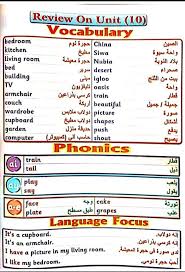 Review On Unit (10)
Vocabulary
bedroom حجرة نوم China الصين
kitchen مطبخ Siwa واحة سيوة
living room حجرة معيشة Nubia بلاد النوبة
bed سرير desert صحراء
building مبنى igloo بيت من الثلج
TV تليفزيون oasis واحة
armchair كرسي بذراعين train قطار
couch أريكة beautiful جميل
wardrobe دولاب ملابس picture صورة
cupboard دولاب مطبخ plane طائرة
garden حديقة push
computer shower دش
Phonics
train قطار
tail ذيل
play يلعب
say يقول
face وجه cake تورتة
plate طبق مسطح grapes عنب
Language Focus
It's a cupboard. إنه دولاب مطبخ.
It's an armchair. إنه كرسي بذراعين.
I have a picture in my living room. لدي صورة في حجرة المعيشة.
I like my bedroom. أحب حجرة نومي.